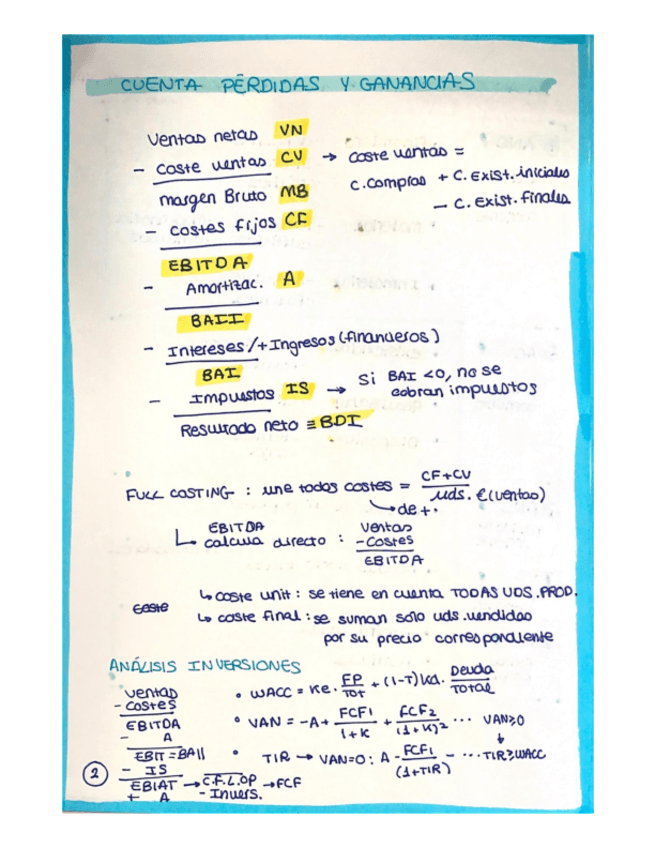 CUENTA PÉRDIDAS Y GANANCIAS
Ventas netas VN
- coste ventas CV → coste ventas =
c.compras + C. Exist. iniciales
- C. Exist. finales
margen Bruto MB
- costes fijos CF
EBITDA
- Amortizac. A
BAII
- Intereses/+Ingresos (financieros)
BAI
- Impuestos IS → Si BAI <0, no se
cobran impuestos
Resultado neto ≡ BDI
FULL COSTING : une todos costes = CF+CV / uds. €(ventas)
↳ de +.
↳ EBITDA calcula directo : Ventas
- Costes
EBITDA
↳ coste unit : se tiene en cuenta TODAS UDS. PROD.
Coste
↳ coste final : se suman solo uds. vendidas
por su precio correspondiente
ANÁLISIS INVERSIONES
Ventas
- Costes
EBITDA
- A
EBIT = BAII
- IS
EBIAT → C.F.L.OP → FCF
+ A - Invers.
• WACC = Ke. FP/Tot + (1-T) Kd. Deuda/Total
• VAN = -A + FCF1/1+K + FCF2/(1+K)2 ... VAN≥0
↓
• TIR → VAN=0 : A - FCF1/(1+TIR) - ... TIR≥WACC
2